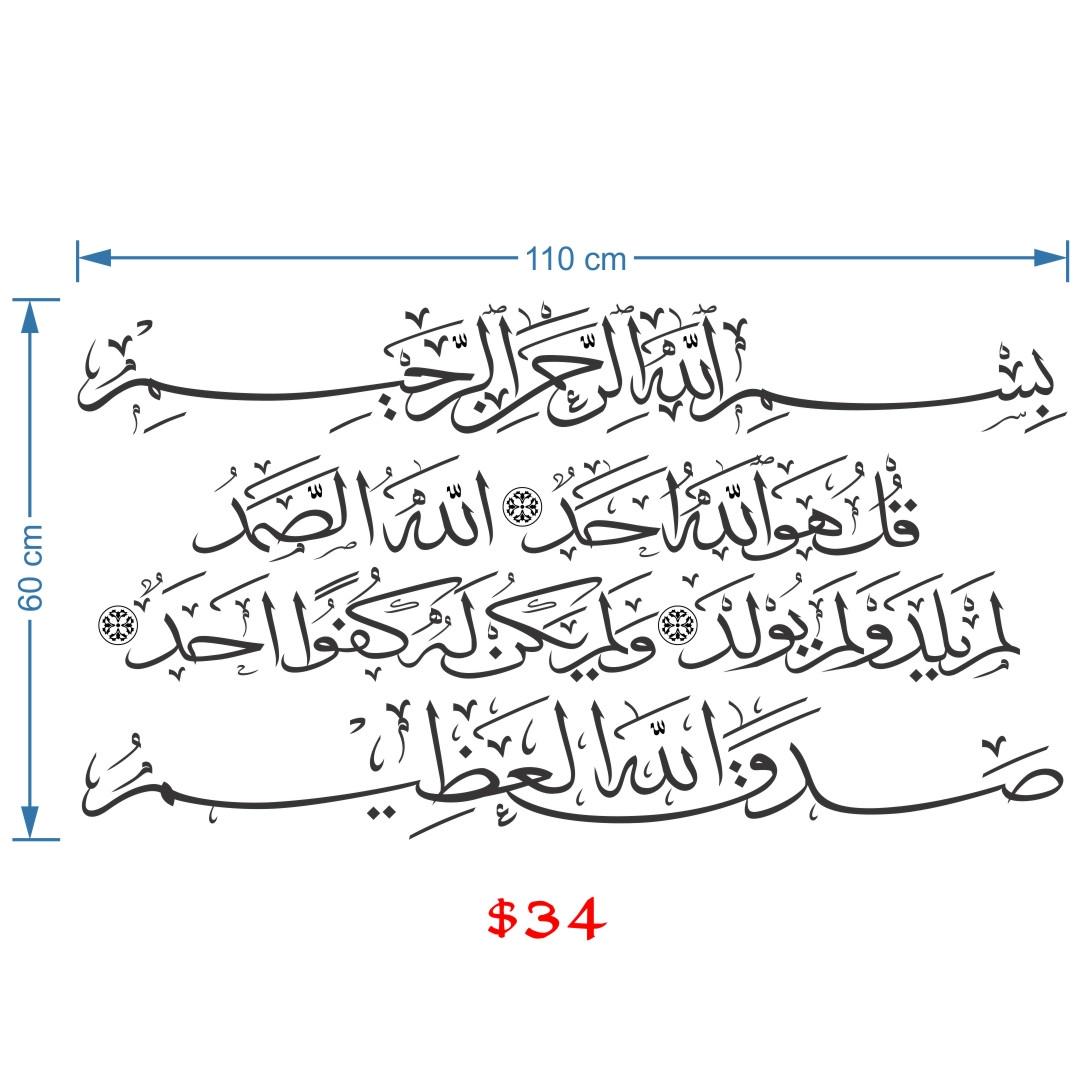 110 cm
60 cm
بِسْمِ اللَّهِ الرَّحْمَنِ الرَّحِيمِ
قُلْ هُوَ اللَّهُ أَحَدٌ اللَّهُ الصَّمَدُ
لَمْ يَلِدْ وَلَمْ يُولَدْ وَلَمْ يَكُنْ لَهُ كُفُوًا أَحَدٌ
صَدَقَ اللَّهُ الْعَظِيمُ
$34